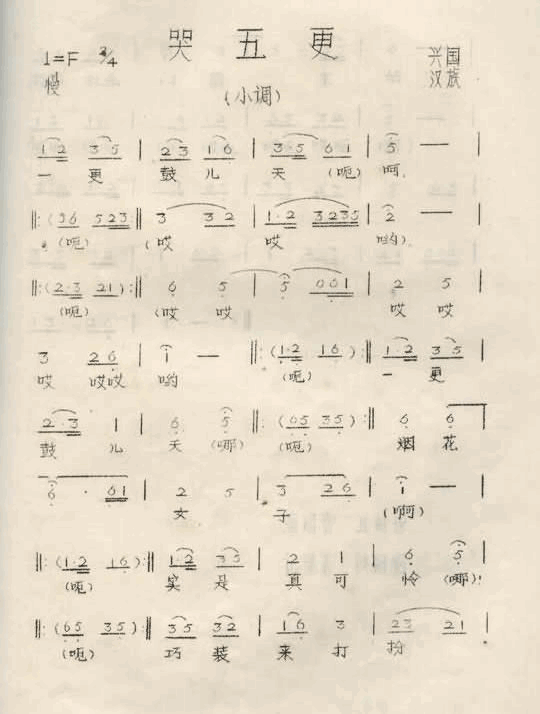 哭五更
1=F 2/4
兴国
慢
汉族
(小调)
1·2 35 | 23 16 | 35 61 | 5 — |
一 更 鼓 儿 天 (呃) 呵
‖:(36 523:‖ 3 32 | 1·2 3235 | 2 — |
(呃) (哎 哎 哟)
‖:(2·3 21):‖ 6 5 | 5 061 | 2 5 |
(呃) (哎 哎 哎 哎
3 26 | 1 — ‖:(1·2 16):‖ 1·2 35 |
哎 哎哎 哟 (呃) 一 更
2·3 1 | 6 5 ‖:(65 35):‖ 6 6 |
鼓 儿 天 (哪) (呃) 烟 花
6 · 61 | 2 5 | 3 26 | 1 — |
女 子 (啊)
‖:(1·2 16):‖ 1·2 35 | 2 1 | 6 5 |
(呃) 实 是 真 可 怜 (哪)!
‖:(65 35):‖ 35 32 | 16 3 | 23 21 |
(呃) 巧 装 来 打 扮